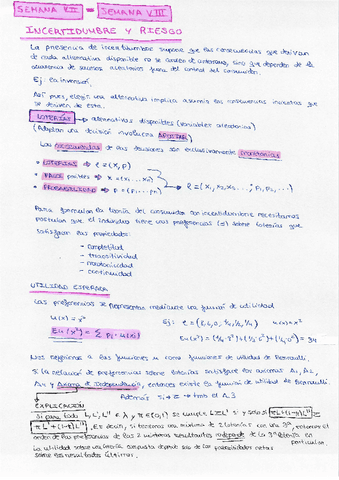 SEMANA VII = SEMANA VIII
INCERTIDUMBRE Y RIESGO
La presencia de incertidumbre supone que las consecuencias que derivan
de cada alternativa disponible no se conocen de antemano, sino que dependen de la
ocurrencia de sucesos aleatorios fuera del control del consumidor.
Ej: la inversión.
Así pues, elegir una alternativa implica asumir las consecuencias inciertas que
se deriven de esta.
LOTERÍAS → alternativas disponibles (variables aleatorias)
(Adoptar una decisión involucra APOSTAR)
Las consecuencias de las decisiones son exclusivamente monetarias
• LOTERÍAS → ℓ = (x, p)
• PAGOS posibles → x = (x₁ ... xₙ)
• PROBABILIDAD → p = (p₁ ... pₙ)
ℓ = (x₁, x₂, x₃ ... ; p₁, p₂, ...)
Para formular la teoría del consumidor con incertidumbre necesitamos
postular que el individuo tiene unas preferencias sobre loterías que
satisfagan las propiedades:
- completitud
- transitividad
- monotonicidad
- continuidad
UTILIDAD ESPERADA
Las preferencias se representan mediante una función de utilidad
u(x) = x²
Eu(x) = Σ pᵢ · u(xᵢ)
Nos referimos a las funciones u como funciones de utilidad de Bernoulli.
Si la relación de preferencias sobre loterías satisface los axiomas A₁, A₂,
A₄ y Axioma de Independencia, entonces existe la función de utilidad de Bernoulli.
Además si → tmb el A.3
EXPLICACIÓN
Si para todo L, L', L'' ∈ y α ∈ (0,1) se cumple y solo si
Es decir, si tenemos una mixtura de 2 loterías con una 3ª, entonces el
orden de las preferencias de las 2 mixturas resultantes independe de la 3ª lotería en particular.
La utilidad sobre una lotería compuesta depende solo de las probabilidades netas
sobre los resultados últimos.